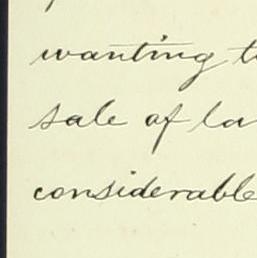 wanting t
sale of la
considerable